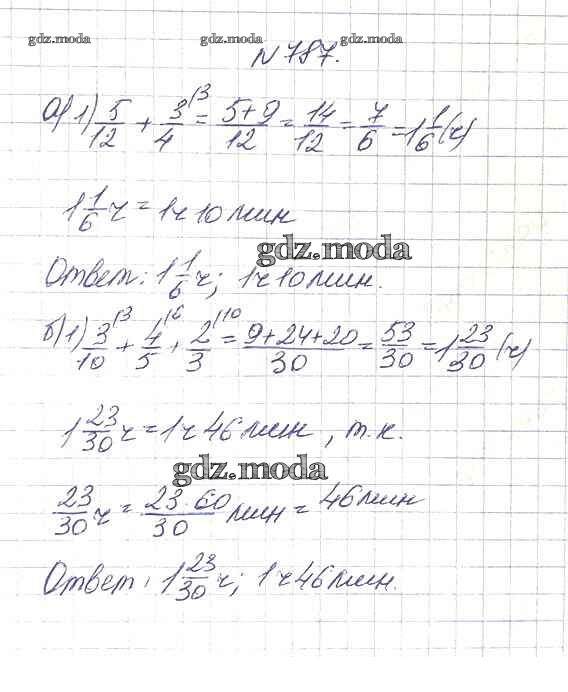 gdz.moda gdz.moda gdz.moda
N 787.
а) 1) 5/12 + 3/4^(3 = (5+9)/12 = 14/12 = 7/6 = 1 1/6 (ч)
1 1/6 ч = 1ч 10 мин
gdz.moda
Ответ: 1 1/6 ч; 1ч 10 мин.
б) 1) 3/10^(3 + 4/5^(6 + 2/3^(10 = (9+24+20)/30 = 53/30 = 1 23/30 (ч)
1 23/30 ч = 1ч 46 мин, т.к.
gdz.moda
23/30 ч = (23·60)/30 мин = 46 мин
Ответ: 1 23/30 ч; 1ч 46 мин.
gdz.moda gdz.moda gdz.moda